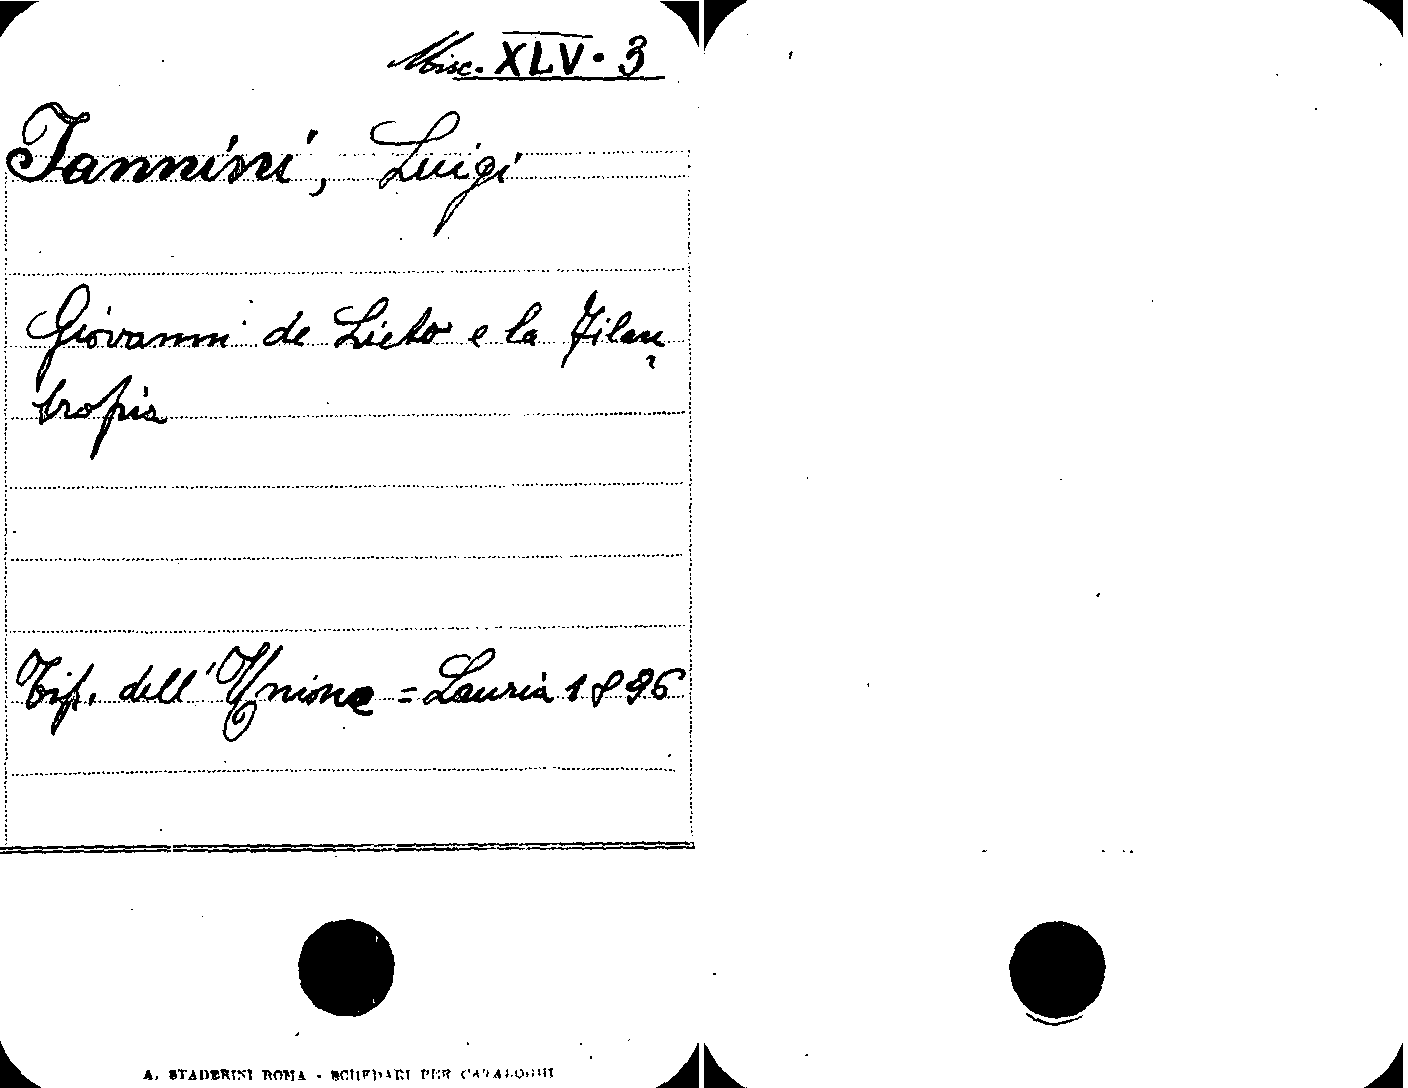 Misc. XLV. 3
Iannini, Luigi
Giovanni de Lieto e la Filan
tropia
Tip. dell'Unione = Lauria 1896
A. STADERINI ROMA - SCHEDARI PER CATALOGHI